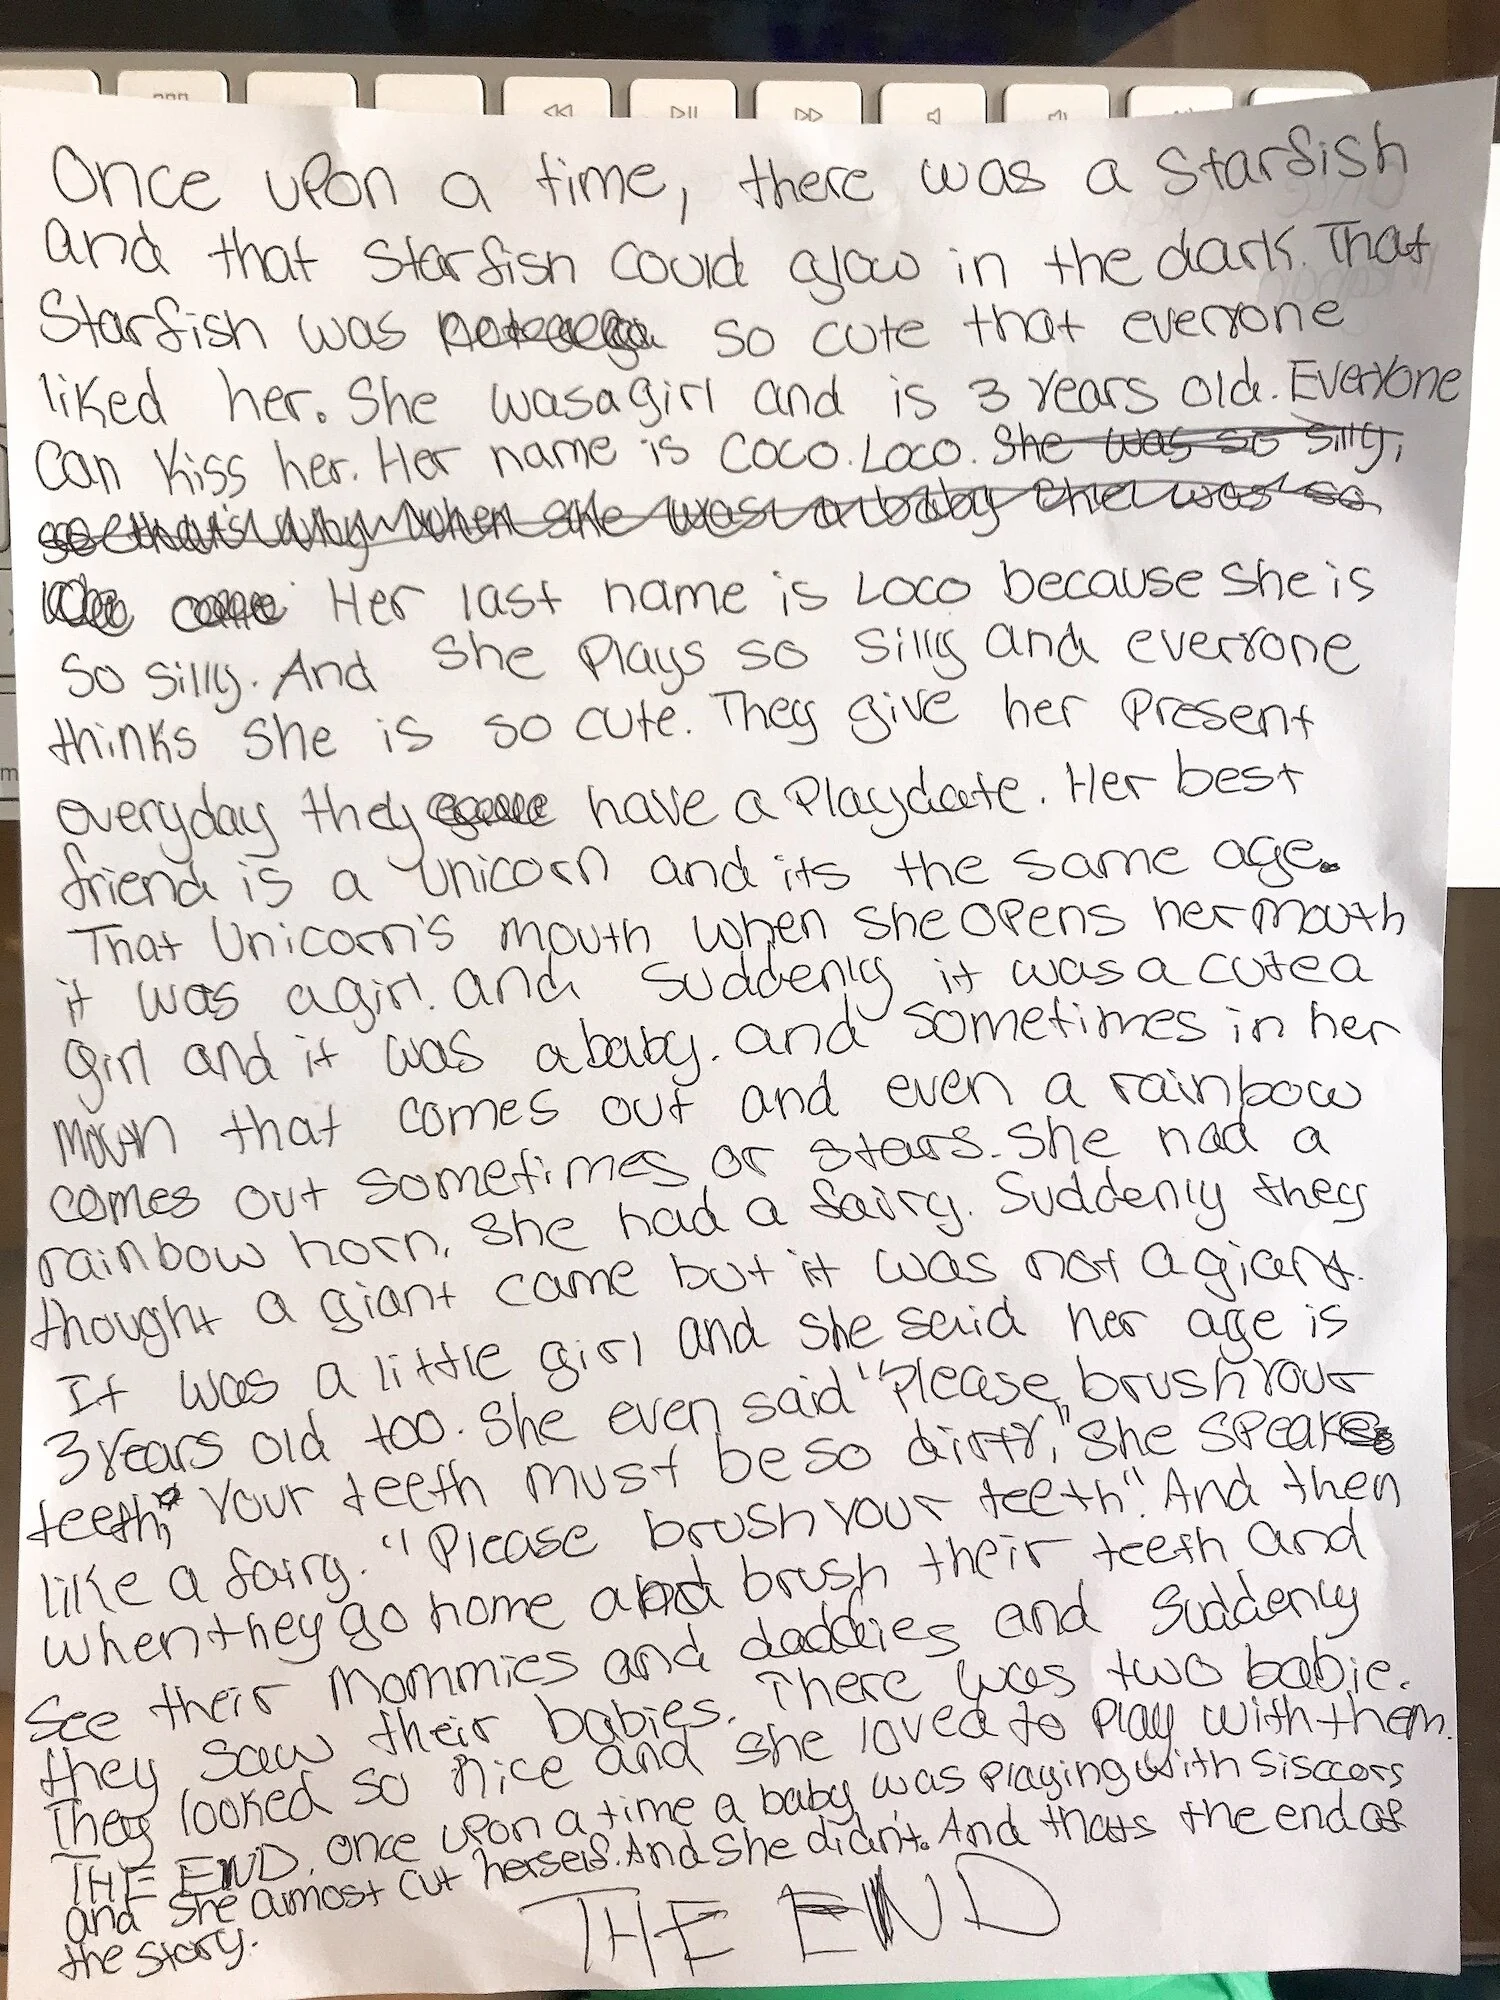 Once upon a time, there was a Starfish
and that Starfish could glow in the dark. That
Starfish was so cute that everyone
liked her. She was a girl and is 3 years old. Everyone
can kiss her. Her name is Coco. Loco. She was so silly,
so that's why when she was a baby she was so
Her last name is Loco because she is
so silly. And she plays so silly and everyone
thinks she is so cute. They give her present
everyday they have a Playdate. Her best
friend is a Unicorn and its the same age.
That Unicorn's mouth when she opens her mouth
it was a girl. and suddenly it was a cute a
girl and it was a baby. and sometimes in her
mouth that comes out and even a rainbow
comes out sometimes or stars. She had a
rainbow horn. She had a fairy. Suddenly they
thought a giant came but it was not a giant.
It was a little girl and she said her age is
3 years old too. She even said "Please brush your
teeth, Your teeth must be so dirty," she speak
like a fairy. "Please brush your teeth". And then
when they go home and brush their teeth and
see their Mommies and daddies and Suddenly
they saw their babies. There was two babie.
They looked so nice and she loved to play with them.
THE END. Once upon a time a baby was playing with Sisccors
and she almost cut herself. And she didn't. And thats the end of
the story.
THE END